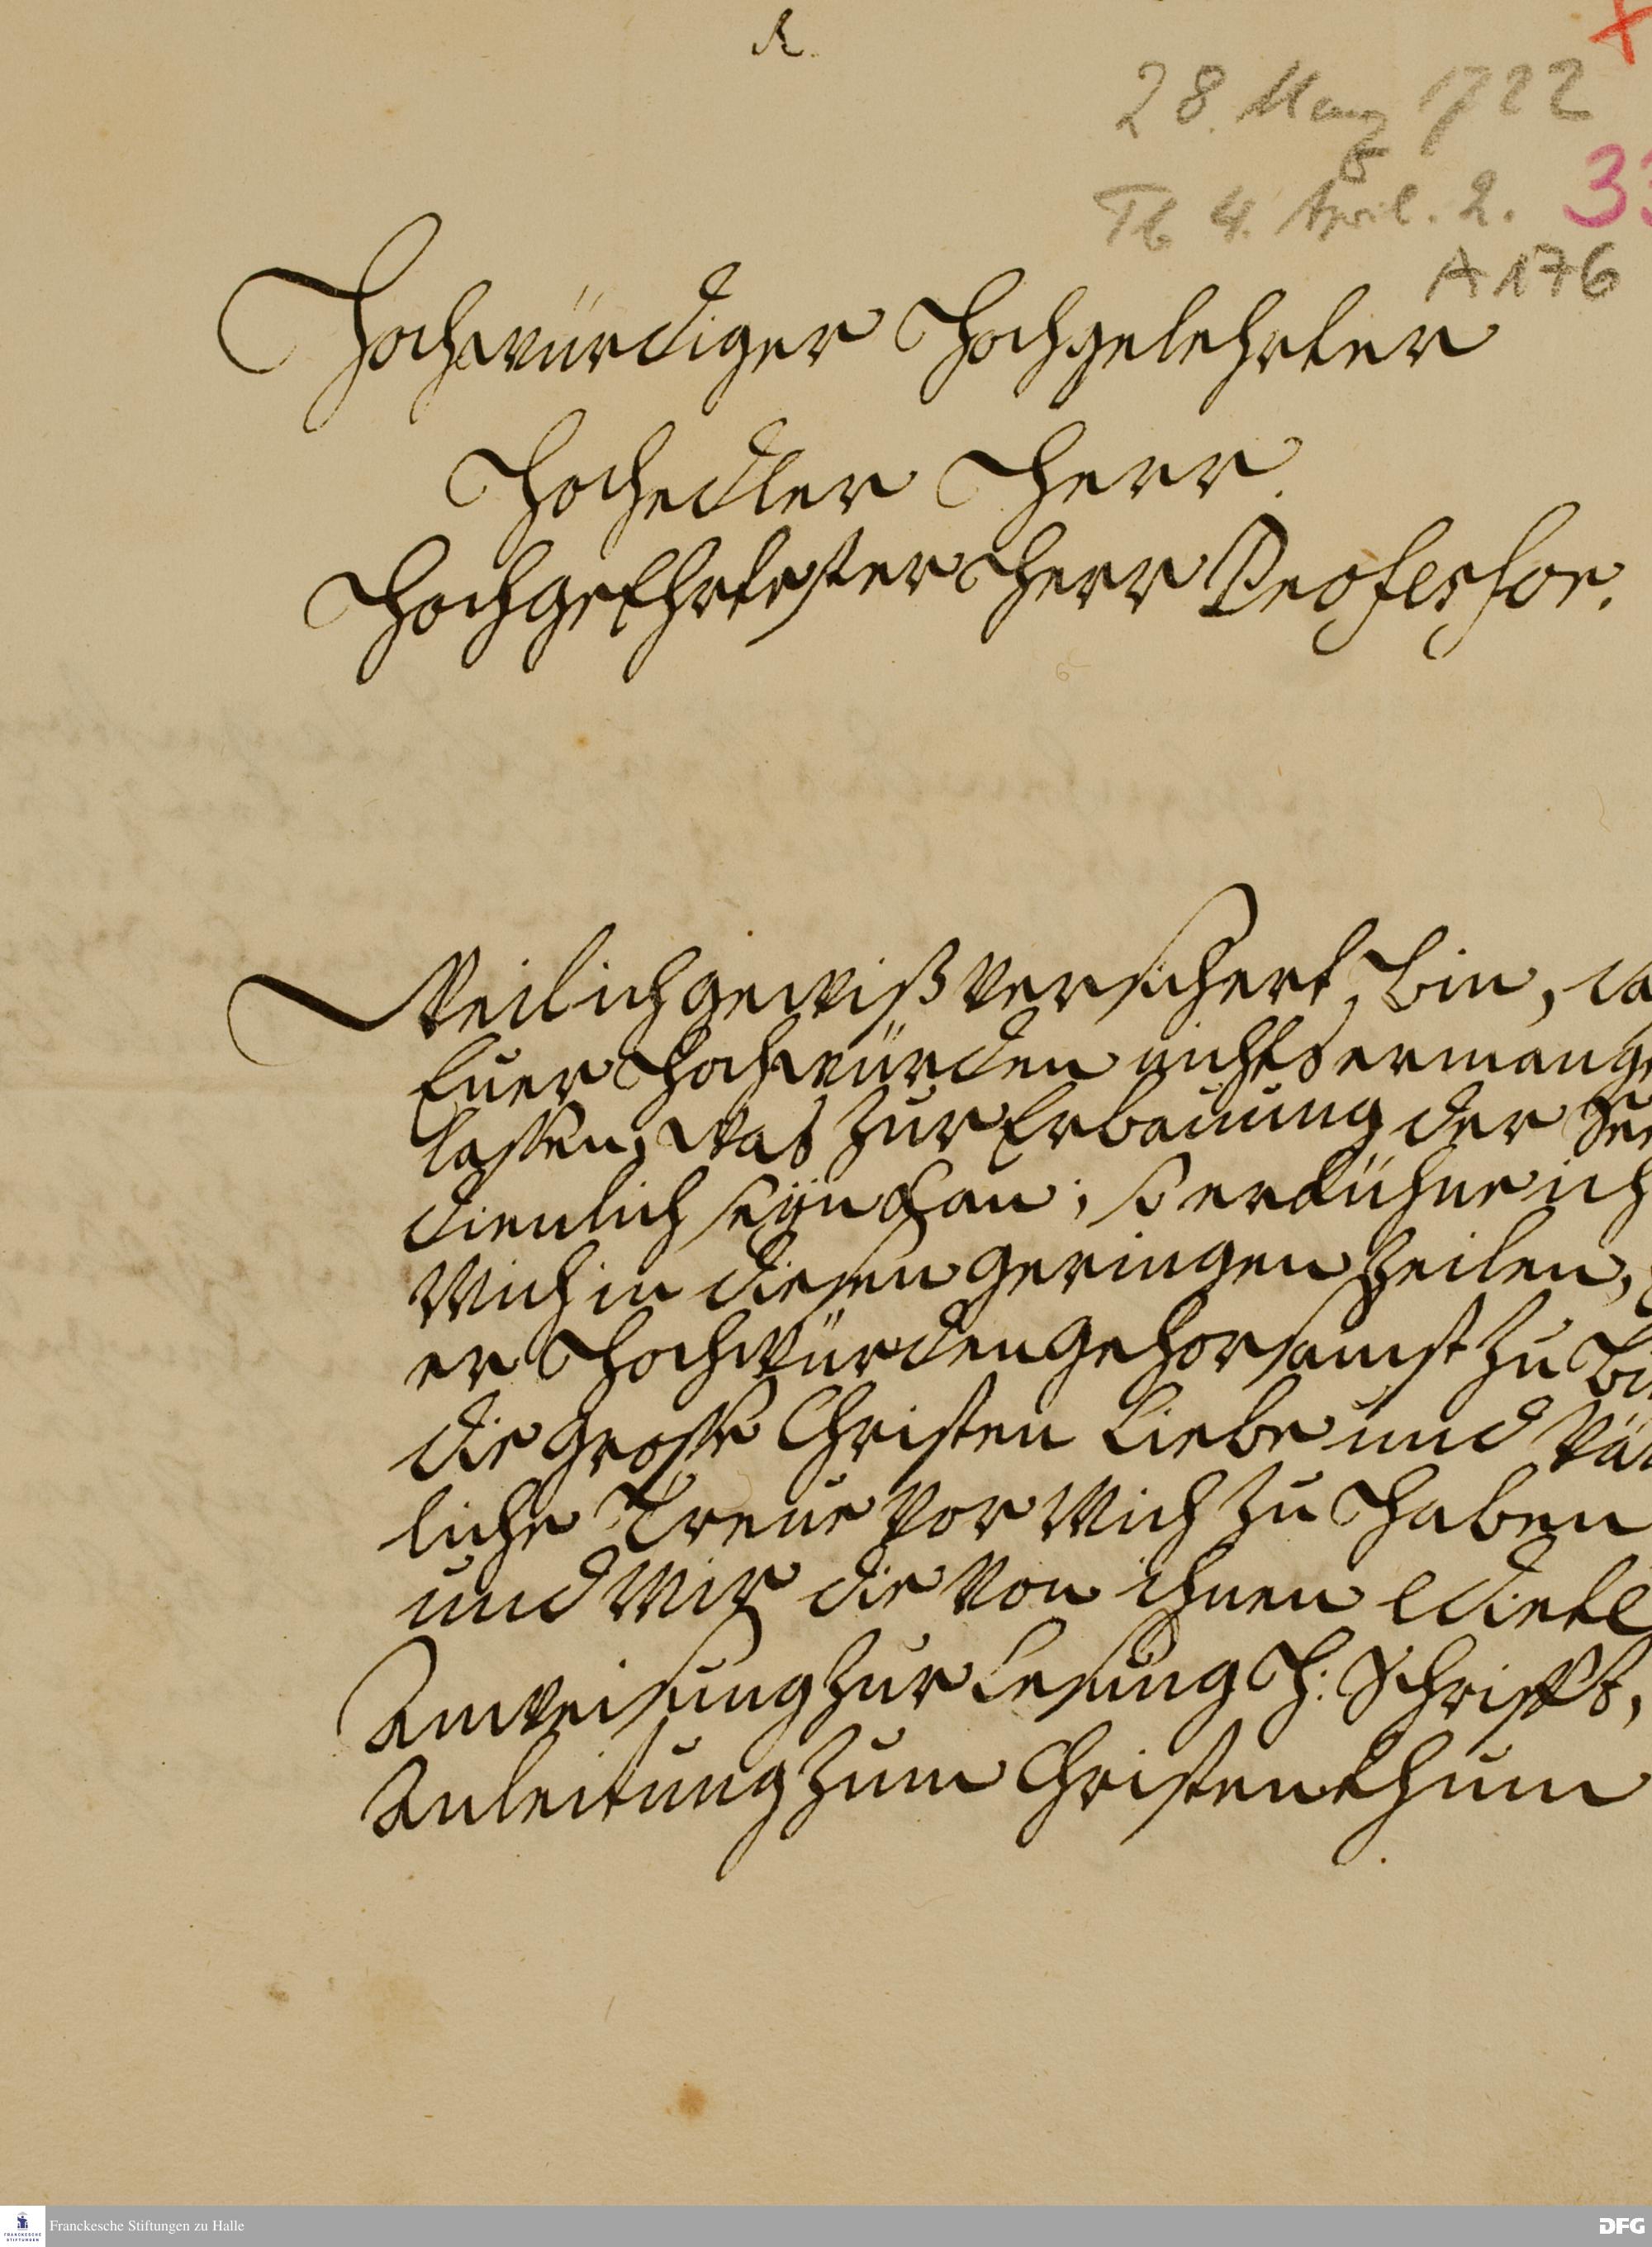 28. März 1722
Tb 4. April. 2. 33
A 176
Hochwürdiger Hochgelehrter
Hochedler Herr.
HochgeEhrtester Herr Professor.
Weil ich gewiß versichert bin, da
Euer Hochwürden nichts ermange
laßen, was zur Erbauung der See
dienlich seÿn kan; so erkühne ich
Mich in diesen geringen Zeilen,
er Hochwürden gehorsamst zu bi
die große Christen Liebe und Vät
liche Treue vor Mich zu haben
und Mir die von ihnen edirte
Anweisung zur Lesung H: Schrifft,
Anleitung zum Christenthum
Franckesche Stiftungen zu Halle
DFG